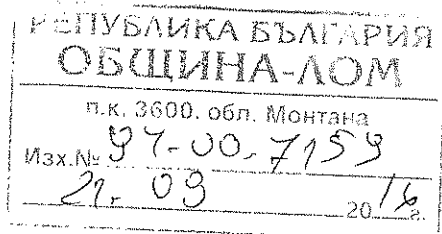 РЕПУБЛИКА БЪЛГАРИЯ
ОБЩИНА-ЛОМ
п.к. 3600. обл. Монтана
Изх.№ 94-00-7159
21. 09 2016 г.